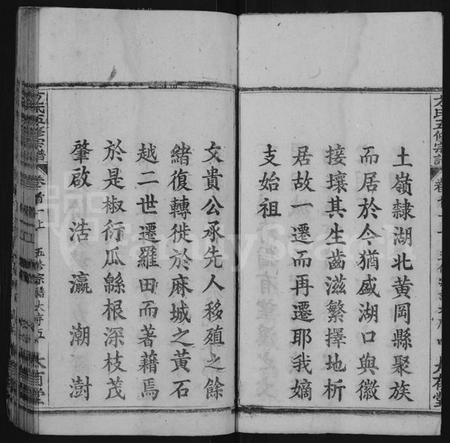 土嶺隸湖北黃岡縣聚族
而居於今猶盛湖口與徽
接壤其生齒滋繁擇地析
居故一遷而再遷耶我嫡
支始祖
文貴公承先人移殖之餘
緒復轉徙於麻城之黃石
越二世遷羅田而著籍焉
於是椒衍瓜緜根深枝茂
肇啟 浩 瀛 潮 澍
方氏五修宗譜 卷首上